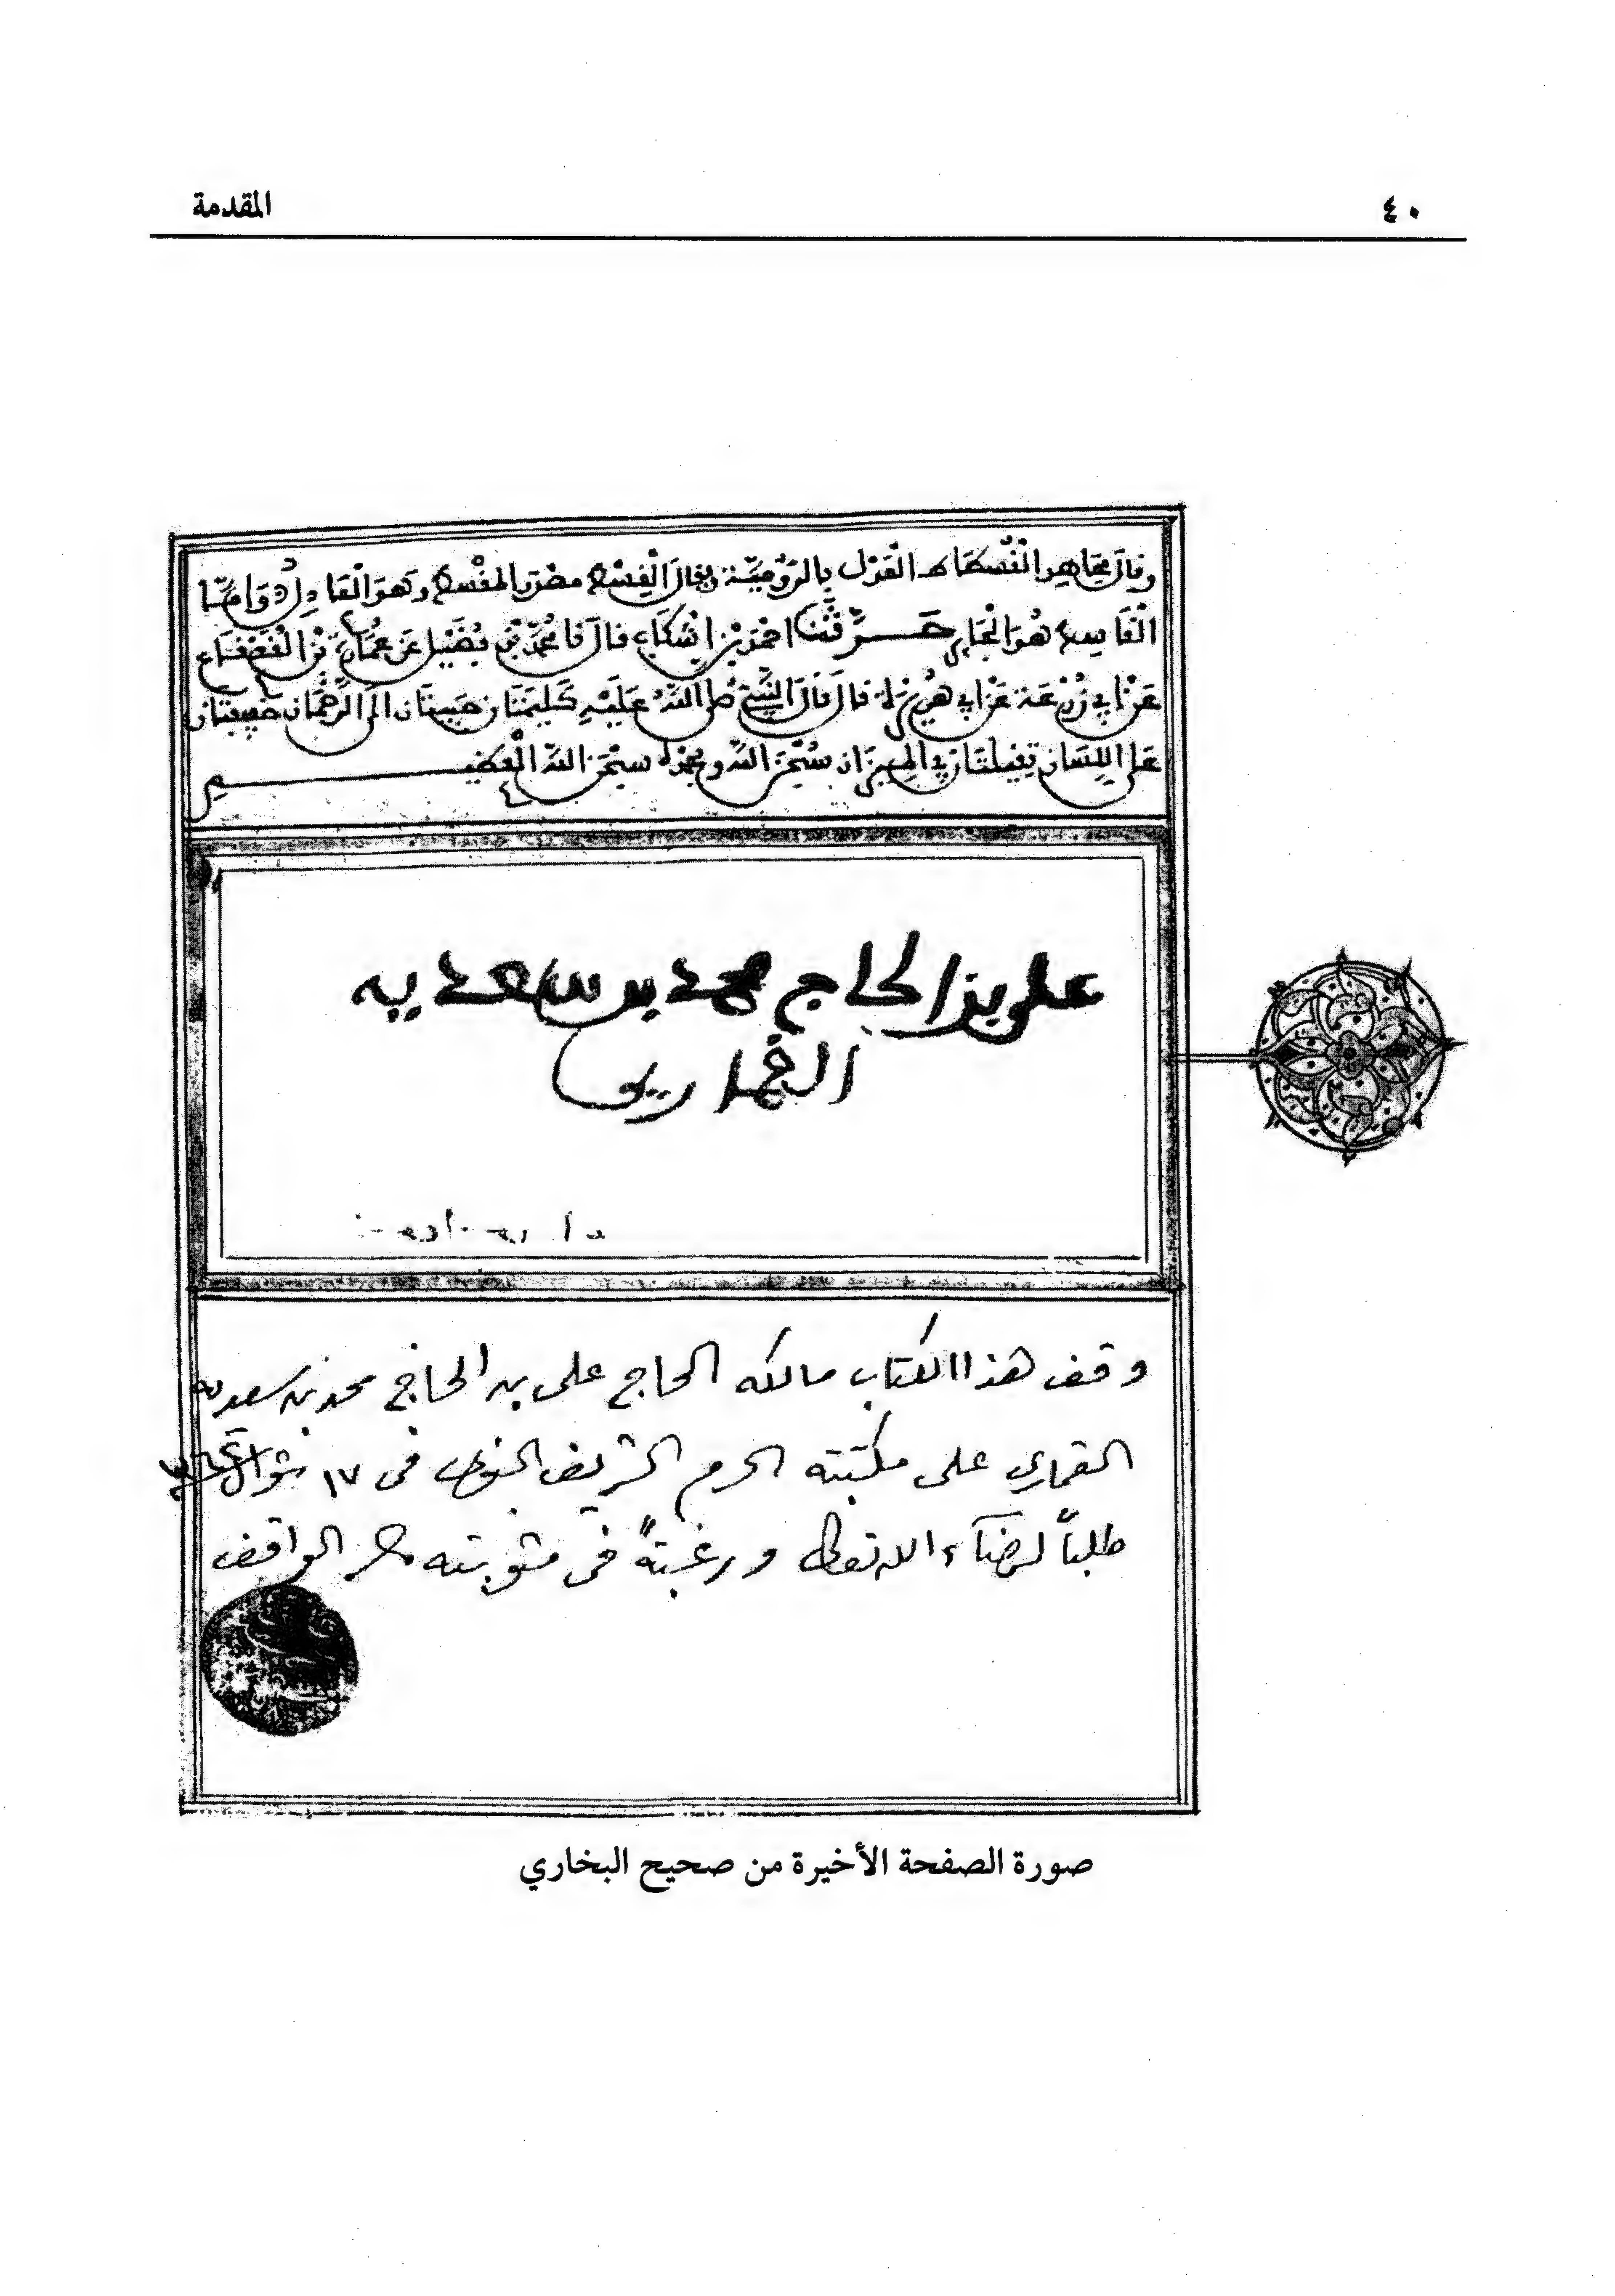 ٤٠
المقدمة
وقال مجاهد القسطاس العدل بالرومية ويقال القسط مصدر المقسط وهو العادل وأما
القاسط هو الجاير حدثنا احمد بن اشكاب قال نا محمد بن فضيل عن عمارة بن القعقاع
عن ابي زرعة عن ابي هريرة قال قال النبي صلى الله عليه كليمتان حبيبتان الى الرحمان خفيفتان
على اللسان ثقيلتان في الميزان سبحن الله وبحمده سبحن الله العظيم
على بن الحاج محمد بن سعديه
القماري
وقف هذا الكتاب مالكه الحاج على بن الحاج محمد بن سعديه
القماري على مكتبته الحرم الشريف النبوى فى ١٧ شوال
طلباً لرضآء الله تعالى ورغبتةً فى مثوبته الواقف
صورة الصفحة الأخيرة من صحيح البخاري